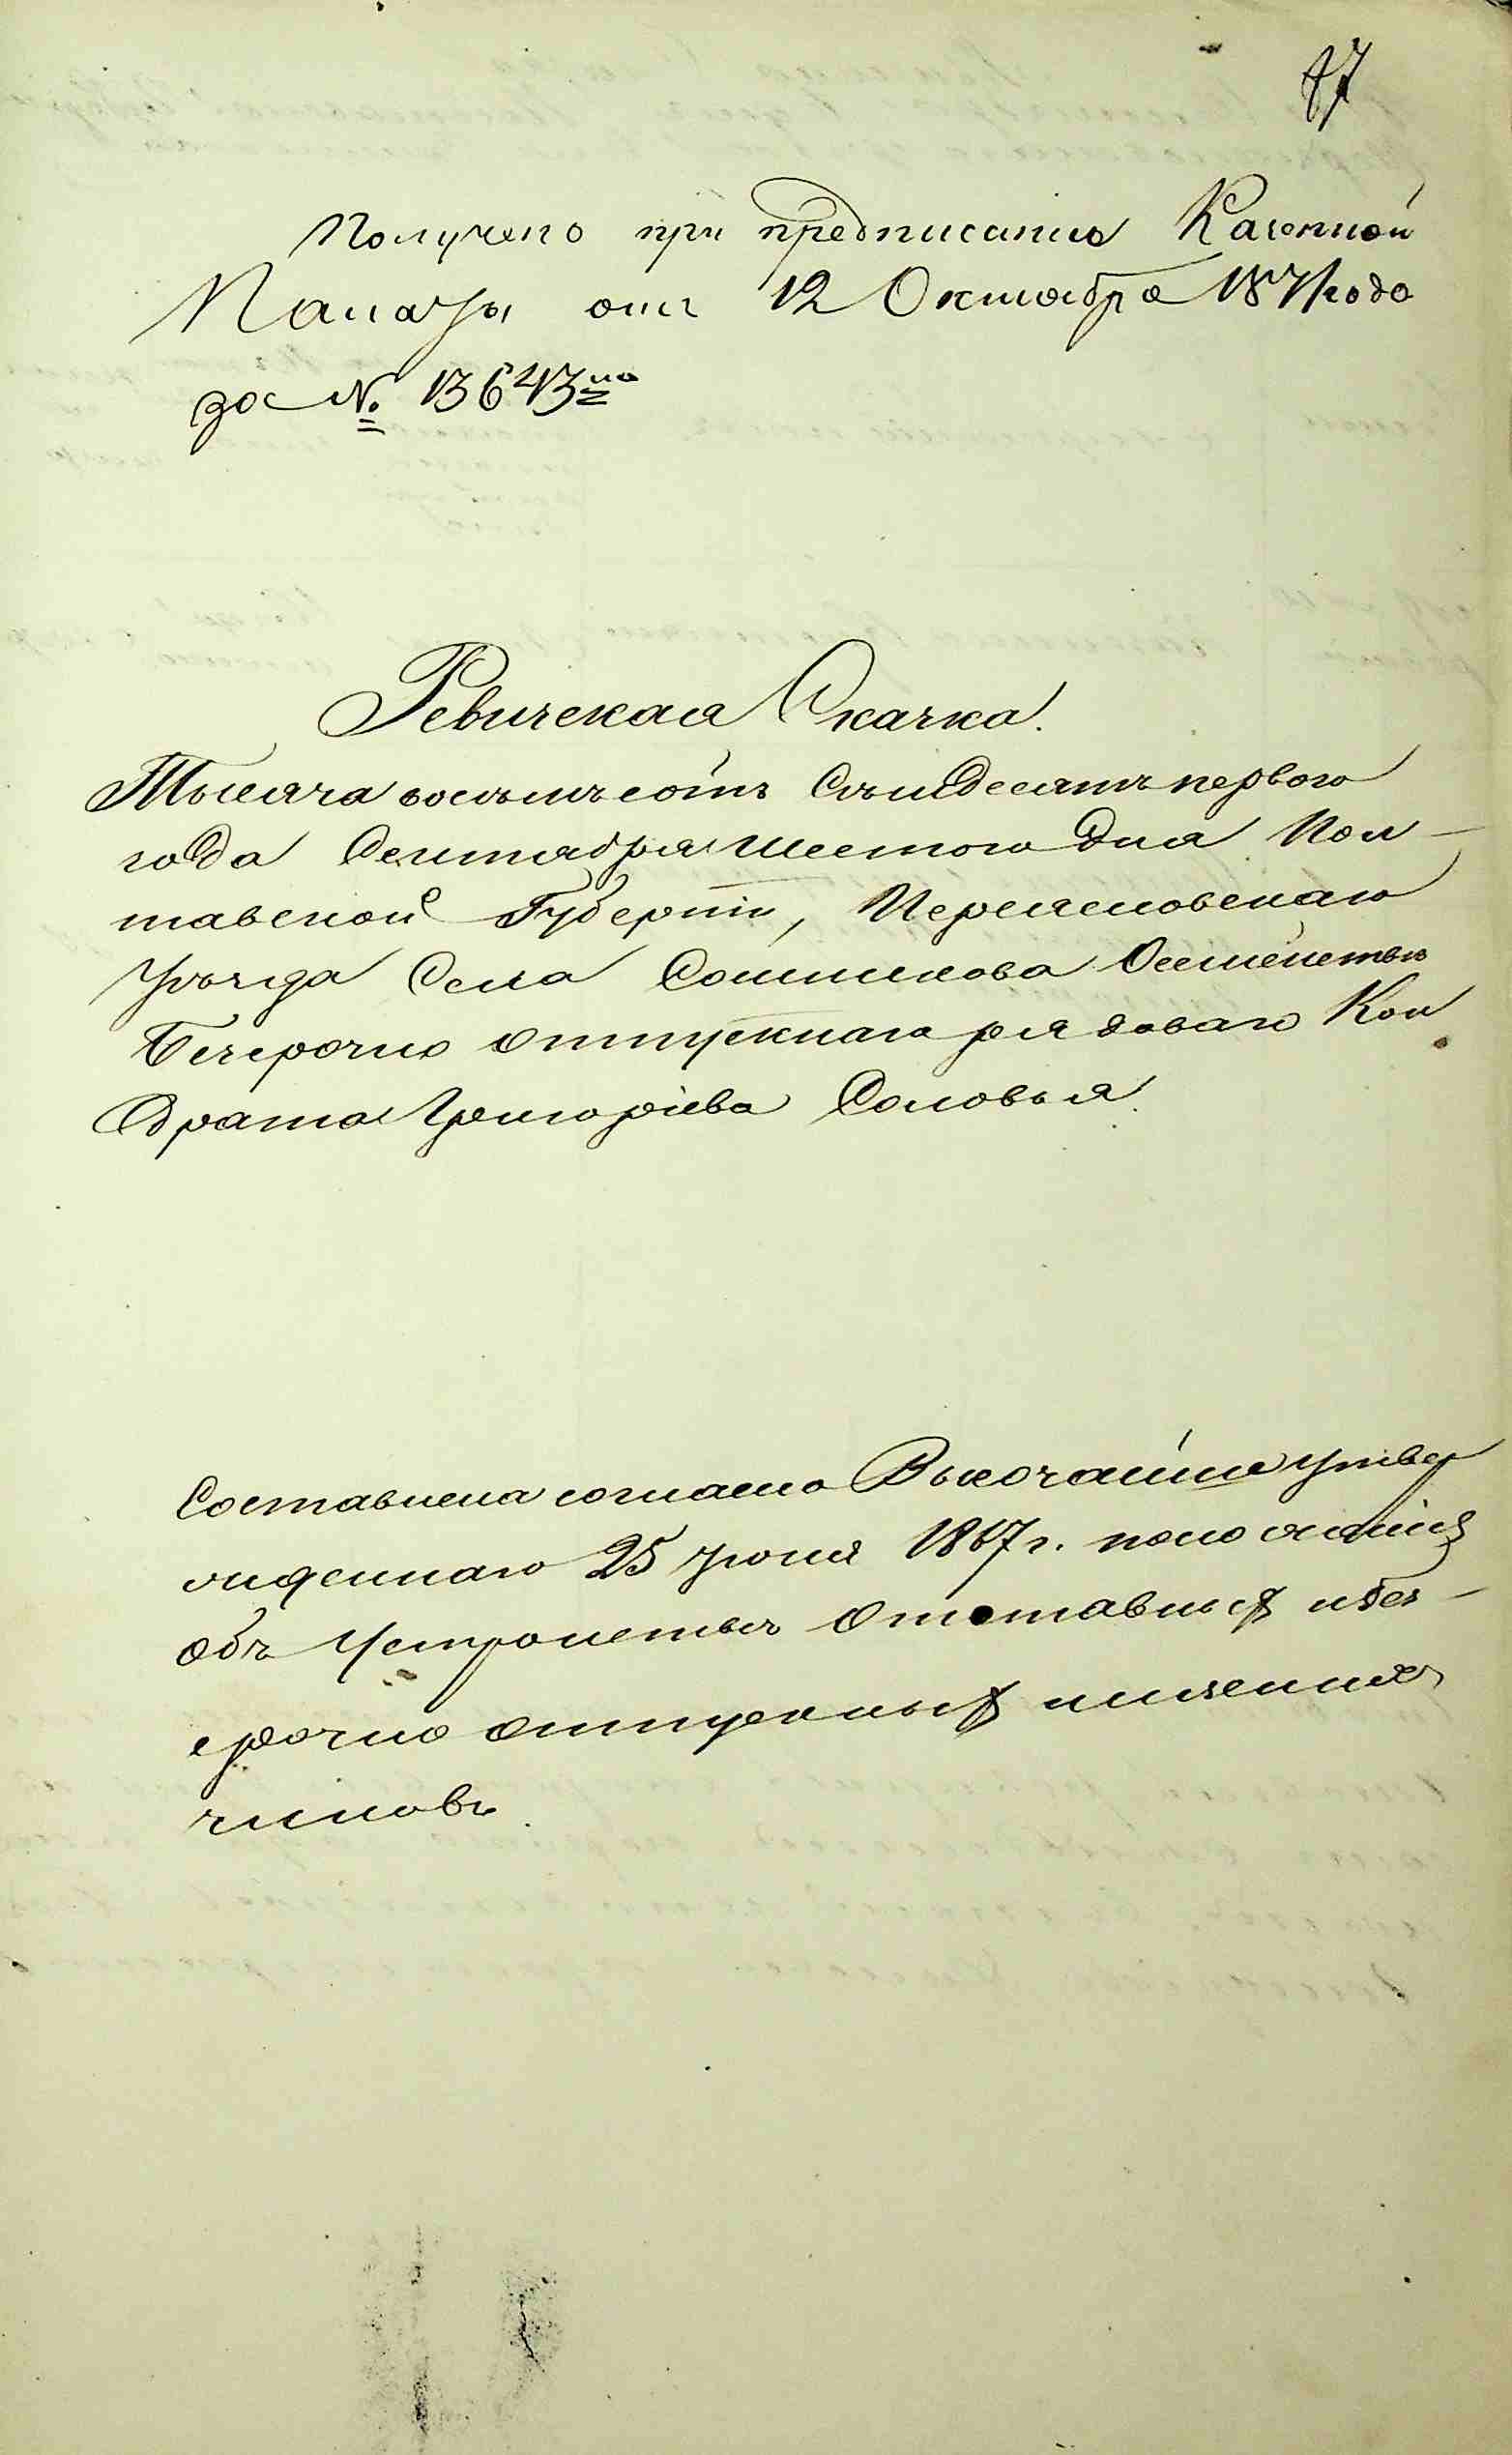 87
Получено при предписании Казенной
Палаты отъ 12 Октября 1871 года
за № 13643мъ
Ревизская Сказка.
Тысяча восѣмъсотъ Сѣмдесятъ перваго
года Сентября шестого дня Пол-
тавской Губерніи, Переясловскаго
Уѣзда Села Сошникова О семействѣ
Безсрочно отпускнаго рядоваго Кон
драта Григоріева Соловья.
Составлена согласно Высочайше утвер
жденнаго 25 Іюня 1867 г. положенія
объ Устройствѣ Отставныхъ и без-
срочно отпускныхъ нижнихъ
чиновъ.